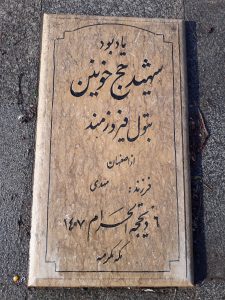 یادبود
شهید حج خونین
بتول فیروزمند
از اصفهان
فرزند: مهدی
۶ ذیحجه الحرام ۱۴۰۷
مکه مکرمه